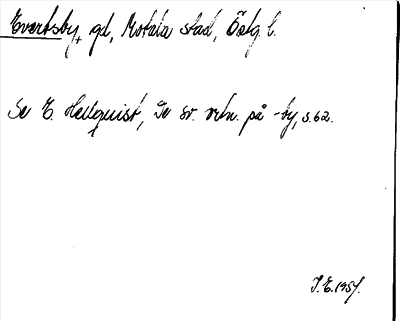 Evertsby, gd, Motala stad, Östg. l.
Se E. Hellquist, De sv. ortn. på -by, s. 62.
J. E. 1957.